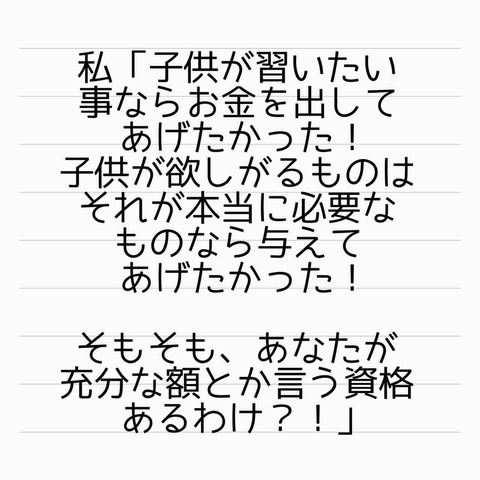 私「子供が習いたい
事ならお金を出して
あげたかった！
子供が欲しがるものは
それが本当に必要な
ものなら与えて
あげたかった！
そもそも、あなたが
充分な額とか言う資格
あるわけ？！」